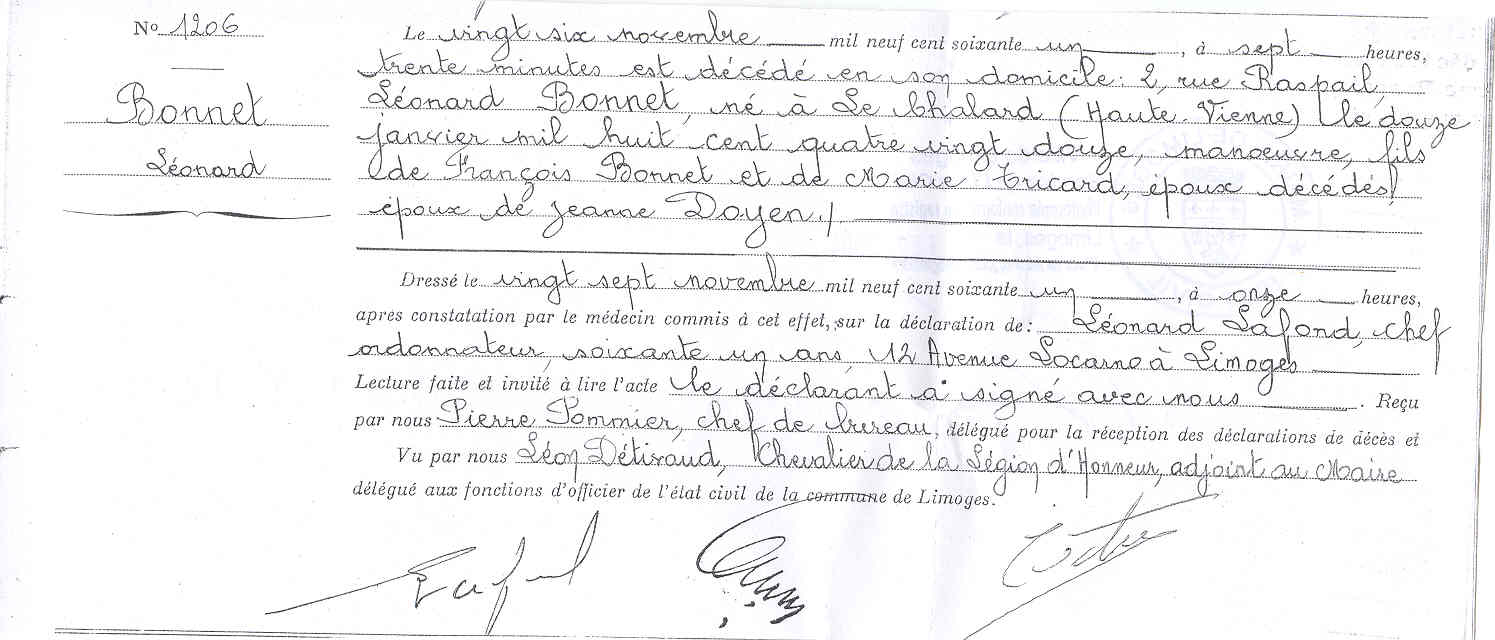 No 1206
Bonnet
Léonard
Le vingt six novembre mil neuf cent soixante un, à sept heures,
trente minutes est décédé en son domicile: 2, rue Raspail,
Léonard Bonnet, né à Le Chalard (Haute-Vienne) le douze
janvier mil huit cent quatre vingt douze, manoeuvre, fils
de François Bonnet et de Marie Tricard, époux décédés,
époux de Jeanne Doyen./
Dressé le vingt sept novembre mil neuf cent soixante un, à onze heures,
après constatation par le médecin commis à cet effet, sur la déclaration de: Léonard Lafond, chef
ordonnateur, soixante un ans, 12 Avenue Locarno à Limoges
Lecture faite et invité à lire l'acte le déclarant a signé avec nous. Reçu
par nous Pierre Pommier, chef de bureau, délégué pour la réception des déclarations de décès et
Vu par nous Léon Détivaud, Chevalier de la Légion d'Honneur, adjoint au Maire
délégué aux fonctions d'officier de l'état civil de la commune de Limoges.